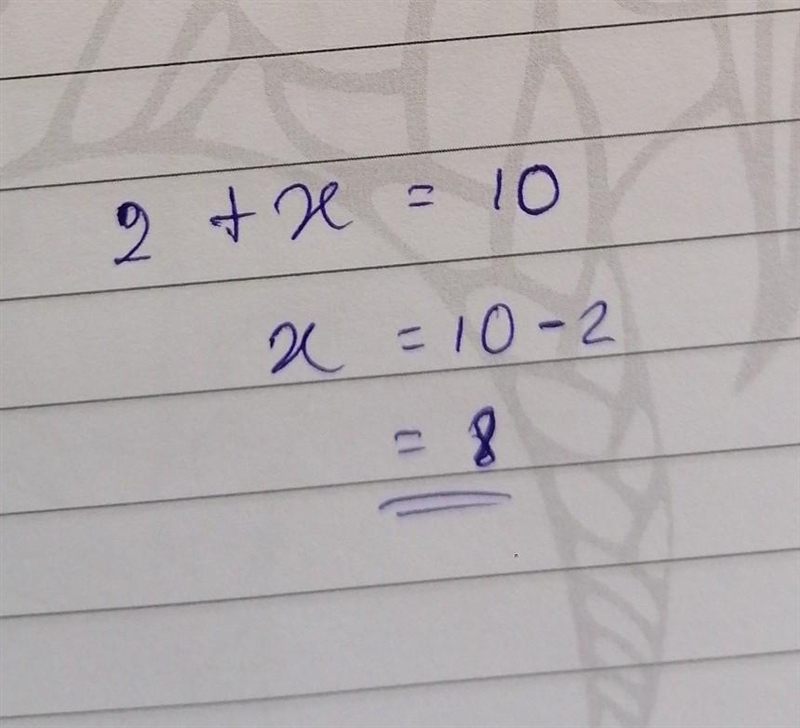 2 + x = 10
x = 10 - 2
= 8